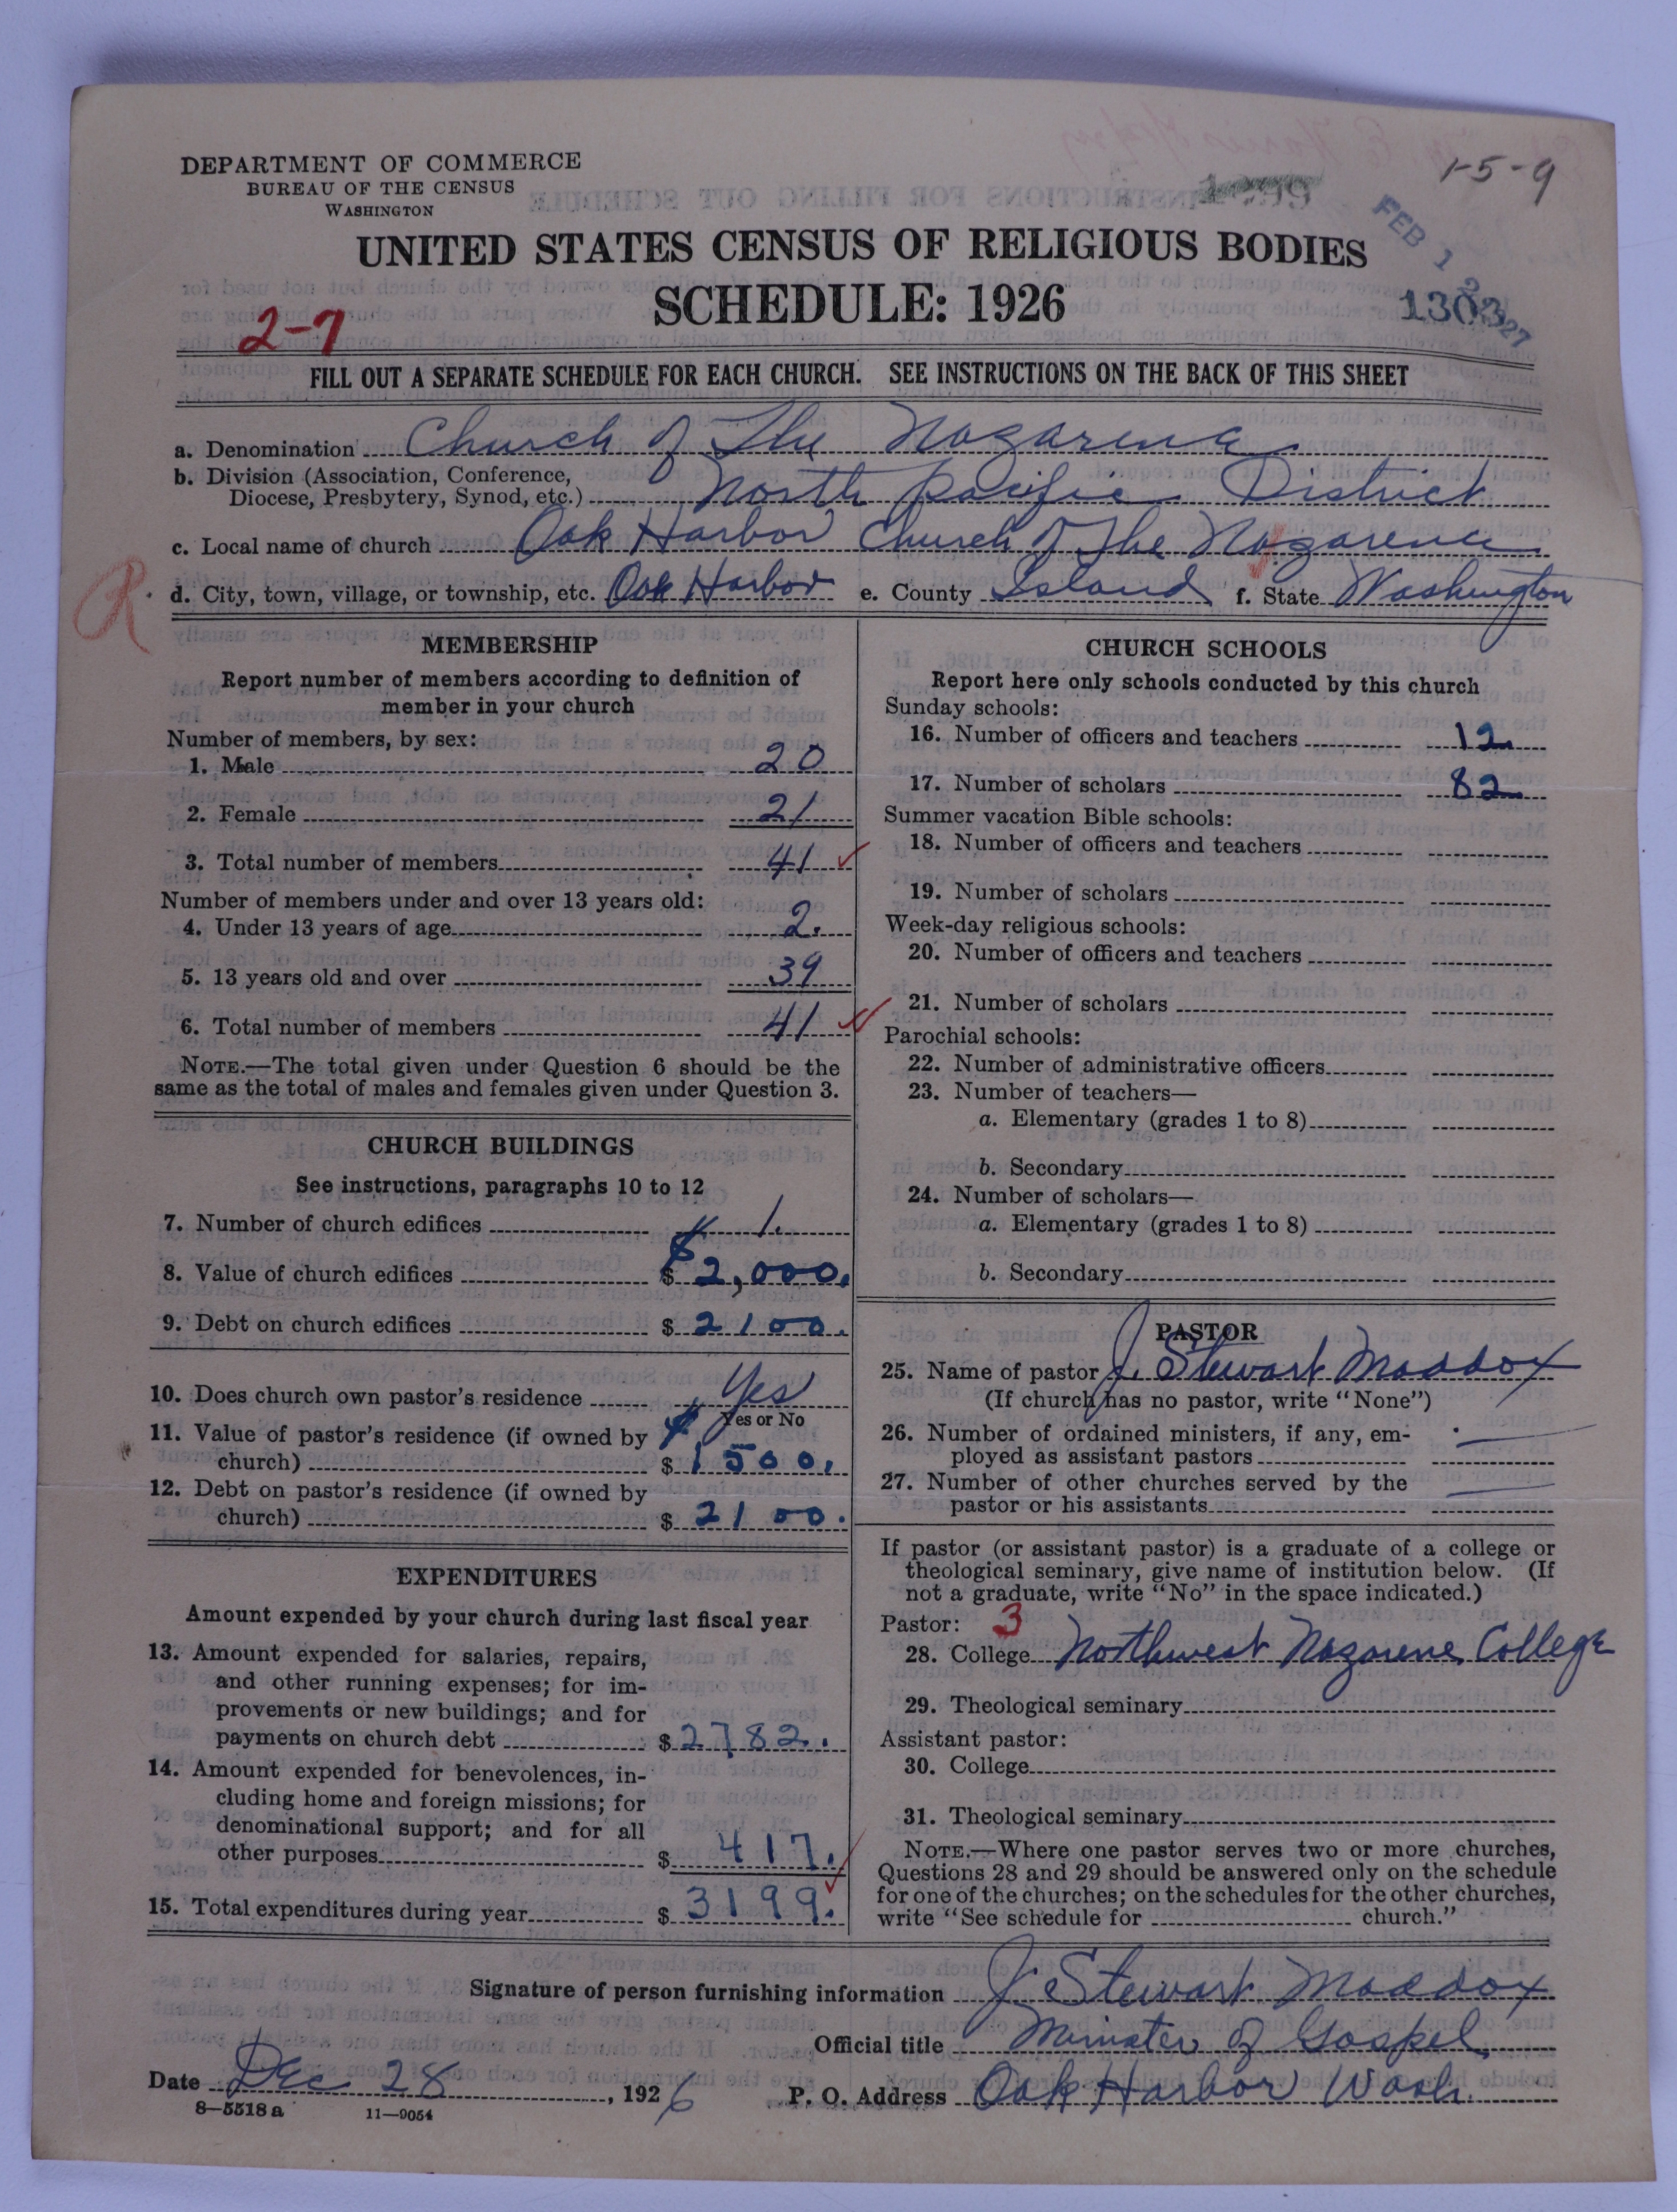 DEPARTMENT OF COMMERCE
BUREAU OF THE CENSUS
WASHINGTON
1-5-9
FEB 1 2 1927
UNITED STATES CENSUS OF RELIGIOUS BODIES
SCHEDULE: 1926
1303
2-7
FILL OUT A SEPARATE SCHEDULE FOR EACH CHURCH. SEE INSTRUCTIONS ON THE BACK OF THIS SHEET
a. Denomination Church of The Nazarene
b. Division (Association, Conference,
Diocese, Presbytery, Synod, etc.) North Pacific District
c. Local name of church Oak Harbor Church of The Nazarene
R
d. City, town, village, or township, etc. Oak Harbor e. County Island f. State Washington
MEMBERSHIP
Report number of members according to definition of
member in your church
Number of members, by sex:
1. Male 20
2. Female 21
3. Total number of members 41
Number of members under and over 13 years old:
4. Under 13 years of age 2.
5. 13 years old and over 39
6. Total number of members 41
NOTE.—The total given under Question 6 should be the
same as the total of males and females given under Question 3.
CHURCH BUILDINGS
See instructions, paragraphs 10 to 12
7. Number of church edifices 1.
8. Value of church edifices $ 2,000.
9. Debt on church edifices $ 2100.
10. Does church own pastor's residence Yes
Yes or No
11. Value of pastor's residence (if owned by
church) $ 1500.
12. Debt on pastor's residence (if owned by
church) $ 2100.
EXPENDITURES
Amount expended by your church during last fiscal year
13. Amount expended for salaries, repairs,
and other running expenses; for im-
provements or new buildings; and for
payments on church debt $ 2782.
14. Amount expended for benevolences, in-
cluding home and foreign missions; for
denominational support; and for all
other purposes $ 417.
15. Total expenditures during year $ 3199.
CHURCH SCHOOLS
Report here only schools conducted by this church
Sunday schools:
16. Number of officers and teachers 12
17. Number of scholars 82
Summer vacation Bible schools:
18. Number of officers and teachers
19. Number of scholars
Week-day religious schools:
20. Number of officers and teachers
21. Number of scholars
Parochial schools:
22. Number of administrative officers
23. Number of teachers—
a. Elementary (grades 1 to 8)
b. Secondary
24. Number of scholars—
a. Elementary (grades 1 to 8)
b. Secondary
PASTOR
25. Name of pastor J. Stewart Maddox
(If church has no pastor, write "None")
26. Number of ordained ministers, if any, em-
ployed as assistant pastors
27. Number of other churches served by the
pastor or his assistants
If pastor (or assistant pastor) is a graduate of a college or
theological seminary, give name of institution below. (If
not a graduate, write "No" in the space indicated.)
Pastor: 3
28. College Northwest Nazarene College
29. Theological seminary
Assistant pastor:
30. College
31. Theological seminary
NOTE.—Where one pastor serves two or more churches,
Questions 28 and 29 should be answered only on the schedule
for one of the churches; on the schedules for the other churches,
write "See schedule for church."
Signature of person furnishing information J. Stewart Maddox
Official title Minister of Gospel
Date Dec 28, 1926 P. O. Address Oak Harbor Wash.
8—5518 a 11—9054